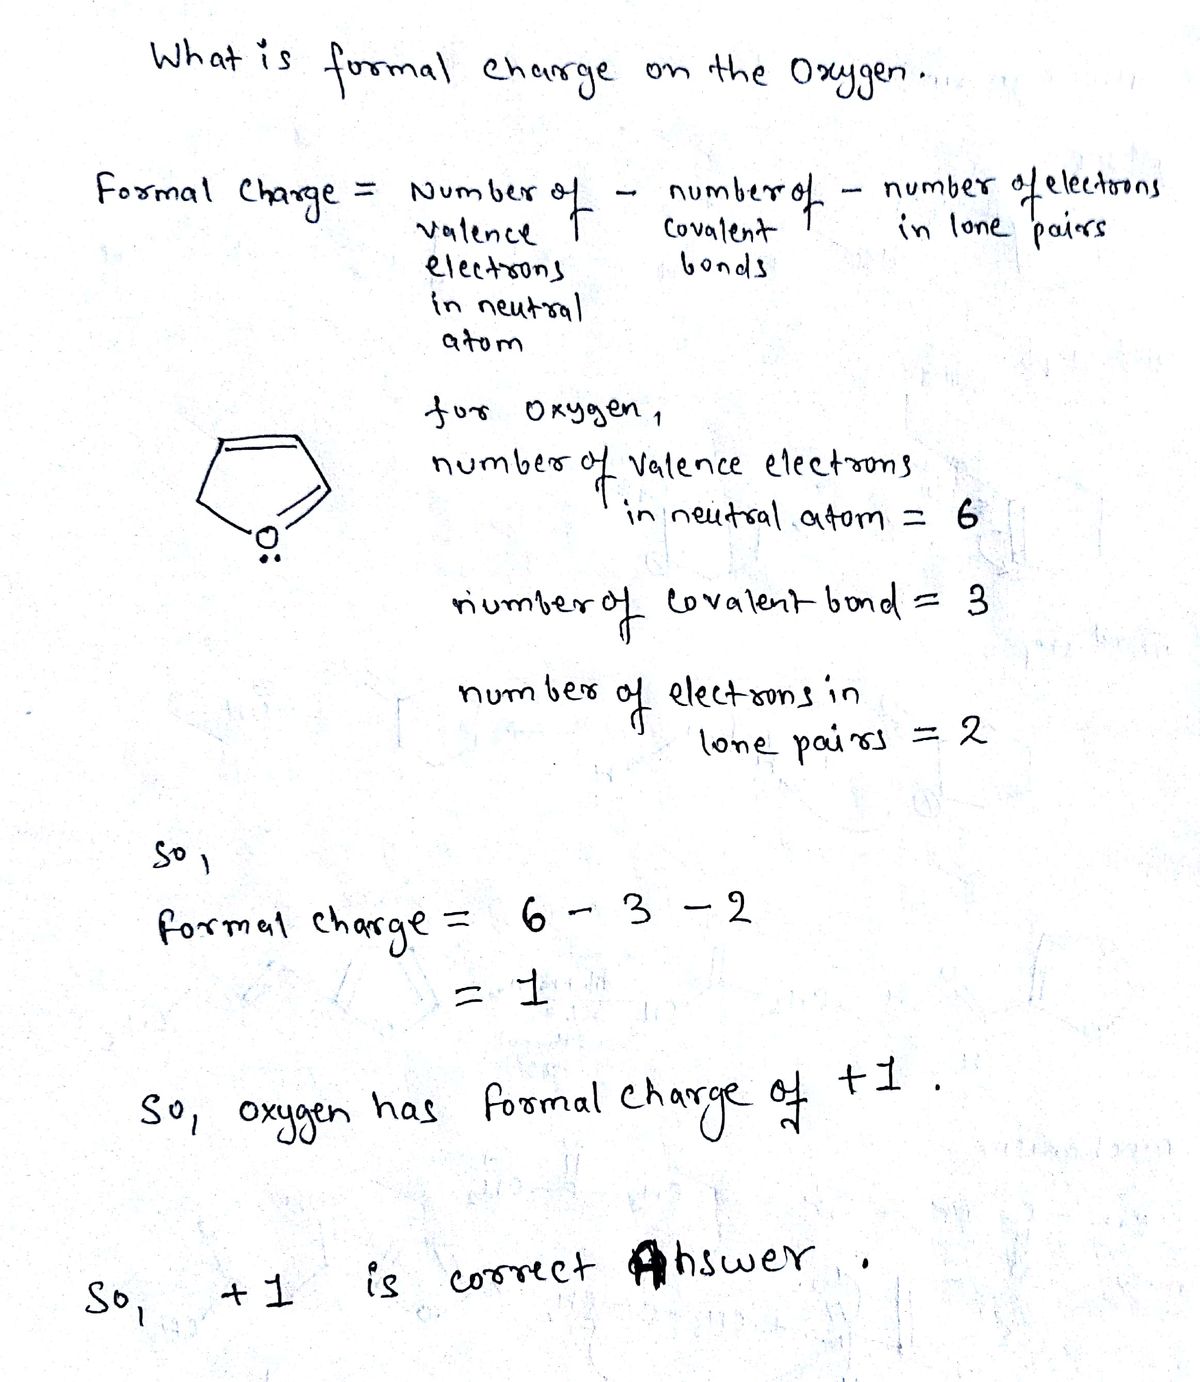 What is formal charge on the Oxygen.
Formal Charge = Number of valence electrons in neutral atom - number of covalent bonds - number of electrons in lone pairs
for oxygen,
number of valence electrons
in neutral atom = 6
O
number of covalent bond = 3
number of electrons in
lone pairs = 2
So,
formal charge = 6 - 3 - 2
= 1
So, oxygen has formal charge of +1.
So, +1 is correct Answer.